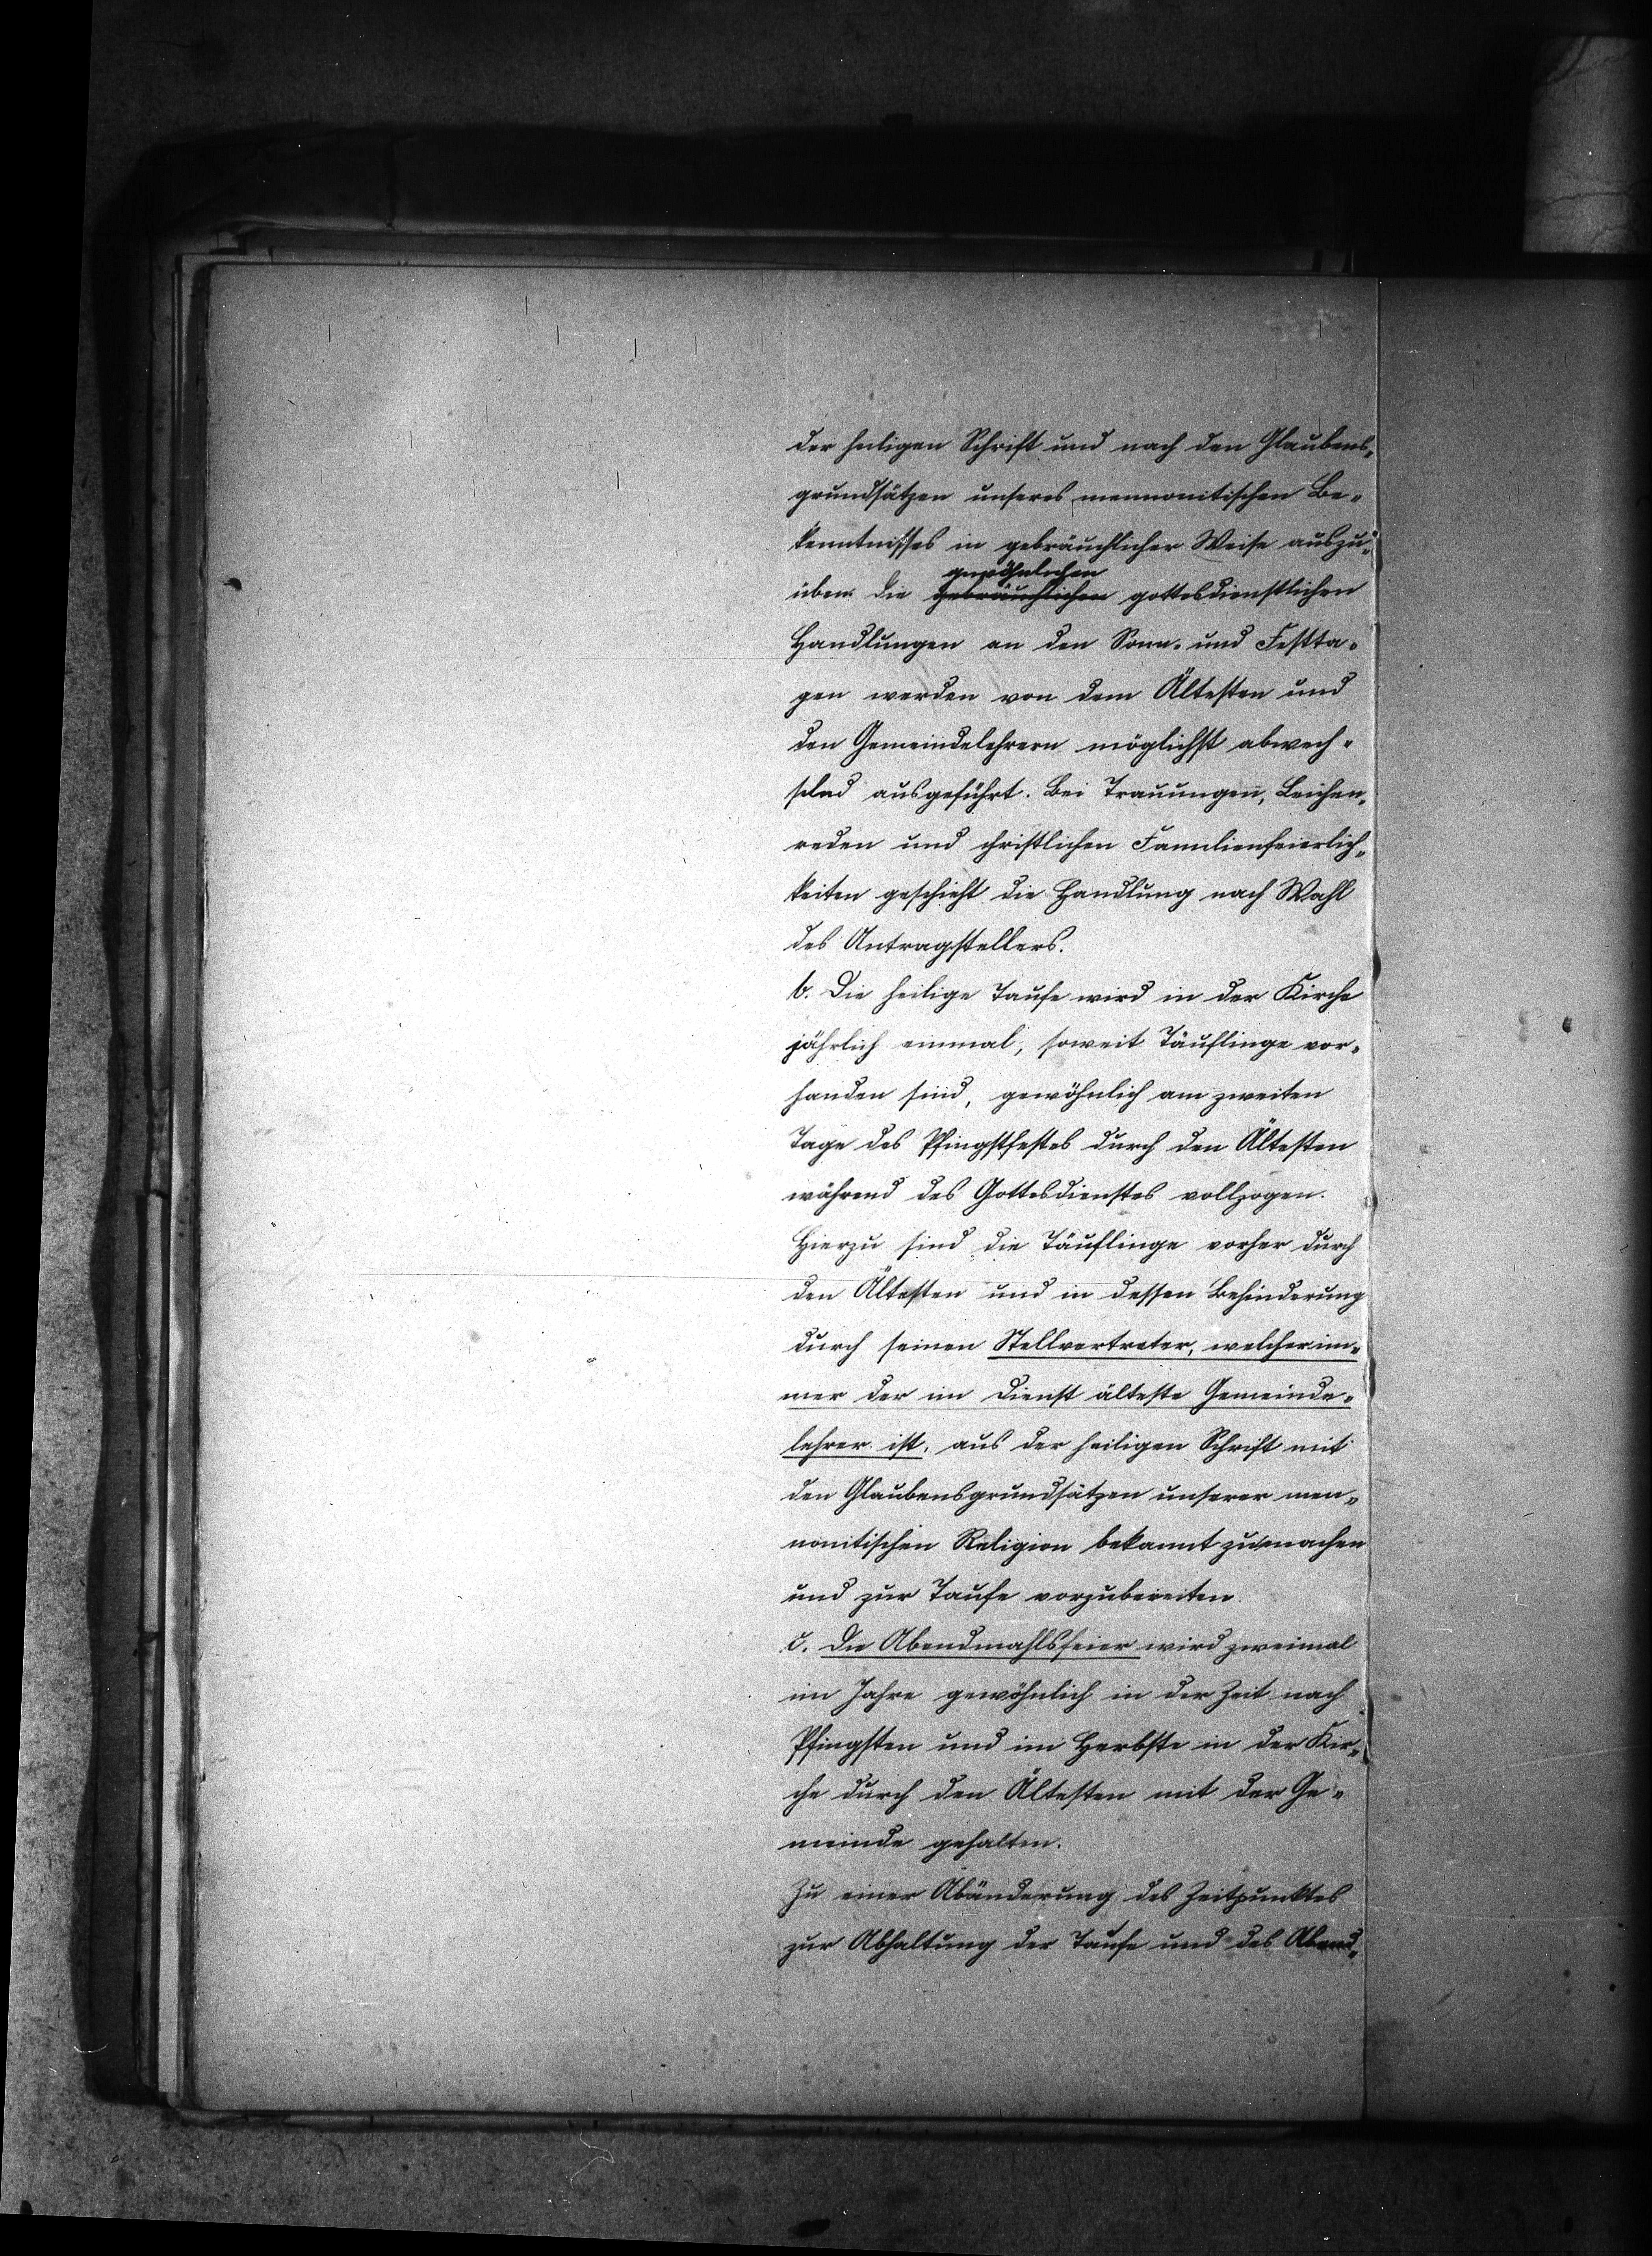 der heiligen Schrift und nach den Glaubens-
grundsätzen unseres mennonitischen Be-
kenntnisses in gebräuchlicher Weise auszu-
gewöhnlichen
üben. Die gebräuchlichen gottesdienstlichen
Handlungen an den Sonn- und Festta-
gen werden von dem Ältesten und
den Gemeindelehrern möglichst abwech-
selnd ausgeführt. Bei Trauungen, Leichen-
reden und christlichen Familienfeierlich-
keiten geschieht die Handlung nach Wahl
des Antragstellers.
b. Die heilige Taufe wird in der Kirche
jährlich einmal, soweit Täuflinge vor-
handen sind, gewöhnlich am zweiten
Tage des Pfingstfestes durch den Ältesten
während des Gottesdienstes vollzogen.
Hierzu sind die Täuflinge vorher durch
den Ältesten und in dessen Behinderung
durch seinen Stellvertreter, welcher im-
mer der im Dienst älteste Gemeinde-
lehrer ist, aus der heiligen Schrift mit
den Glaubensgrundsätzen unserer men-
nonitischen Religion bekannt zu machen
und zur Taufe vorzubereiten.
c. Die Abendmahlsfeier wird zweimal
im Jahre gewöhnlich in der Zeit nach
Pfingsten und im Herbste in der Kir-
che durch den Ältesten mit der Ge-
meinde gehalten.
Zu einer Abänderung des Zeitpunktes
zur Abhaltung der Taufe und des Abend-